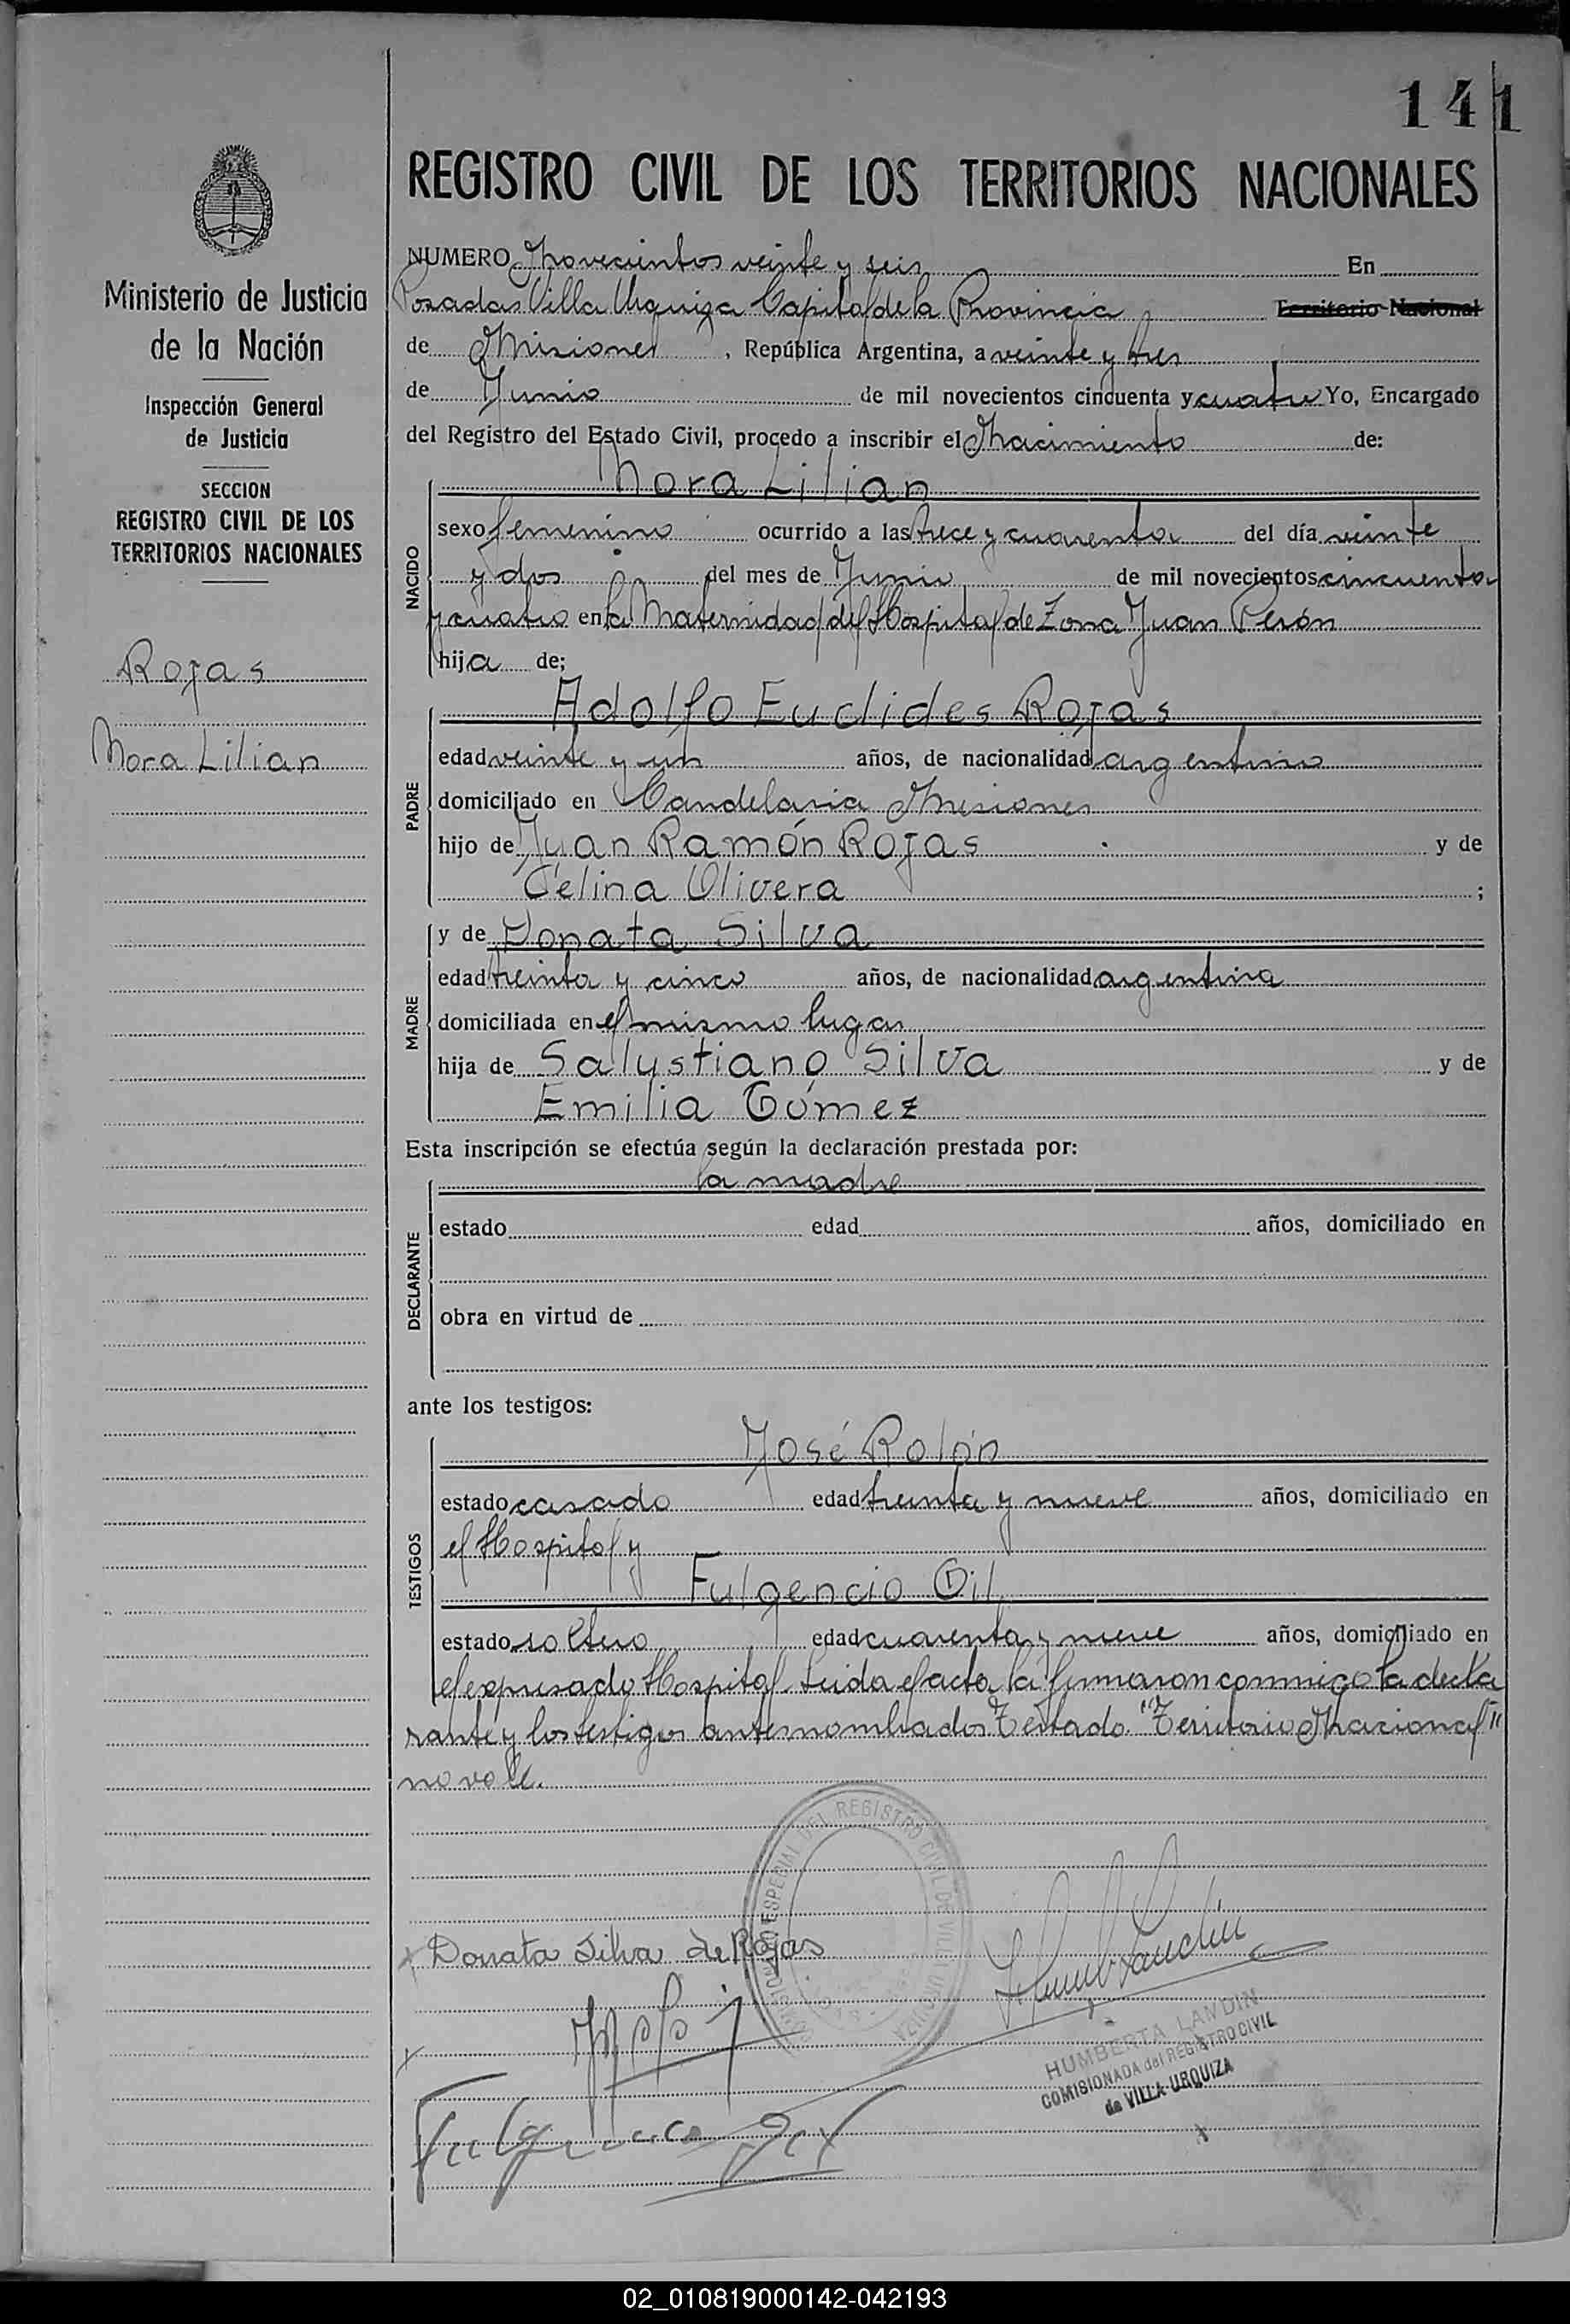 141
REGISTRO CIVIL DE LOS TERRITORIOS NACIONALES
Ministerio de Justicia
de la Nación
Inspección General
de Justicia
SECCION
REGISTRO CIVIL DE LOS
TERRITORIOS NACIONALES
Rojas
Nora Lilian
NUMERO Novecientos veinte y seis En
Posadas Villa Urquiza Capital de la Provincia Territorio Nacional
de Misiones, República Argentina, a veinte y tres
de Junio de mil novecientos cincuenta y cuatro Yo, Encargado
del Registro del Estado Civil, procedo a inscribir el Nacimiento de:
NACIDO
Nora Lilian
sexo femenino ocurrido a las trece y cuarenta del día veinte
y dos del mes de Junio de mil novecientos cincuenta
y cuatro en la Maternidad del Hospital de Zona Juan Perón
hija de;
PADRE
Adolfo Euclides Rojas
edad veinte y un años, de nacionalidad argentino
domiciliado en Candelaria Misiones
hijo de Juan Ramón Rojas y de
Celina Olivera ;
MADRE
y de Donata Silva
edad treinta y cinco años, de nacionalidad argentina
domiciliada en el mismo lugar
hija de Salustiano Silva y de
Emilia Gómez
Esta inscripción se efectúa según la declaración prestada por:
DECLARANTE
la madre
estado edad años, domiciliado en
obra en virtud de
ante los testigos:
TESTIGOS
José Rolón
estado casado edad treinta y nueve años, domiciliado en
el Hospital y
Fulgencio Gil
estado soltero edad cuarenta y nueve años, domiciliado en
el expresado Hospital Leida el acta la firmaron conmigo la decla
rante y los testigos antes nombrados Testado "Territorio Nacional"
no vale.
COMISIONADO ESPECIAL DEL REGISTRO CIVIL DE VILLA URQUIZA
Donata Silva de Rojas
Fulgencio Gil
HUMBERTA LANDIN
COMISIONADA del REGISTRO CIVIL
de VILLA URQUIZA
02_010819000142-042193